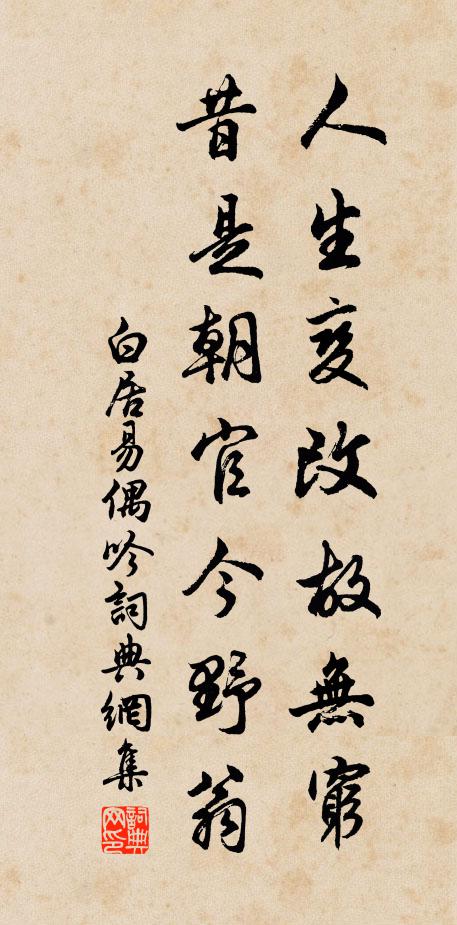 人生变改故無窮
昔是朝官今野翁
白居易偶吟詞典網集
詞典网印